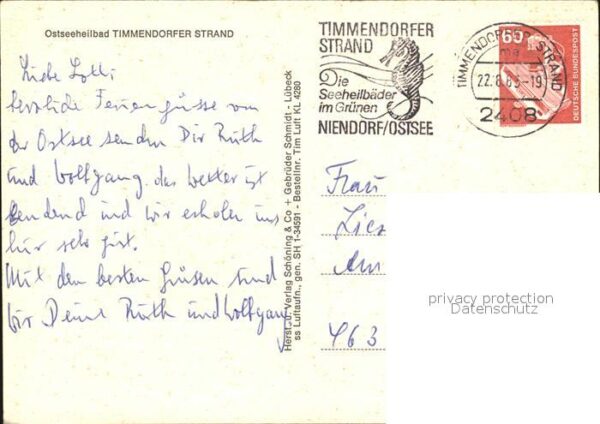 Ostseeheilbad TIMMENDORFER STRAND
Liebe Lotti
herzliche Feriengrüsse von
der Ostsee senden Dir Ruth
und Wolfgang das Wetter ist
und wir erholen uns
hier sehr gut.
Mit den besten Grüsen sind
wir Deine Ruth und Wolfgang
Herst. u. Verlag Schöning & Co + Gebrüder Schmidt - Lübeck
ss Luftaufn., gen. SH 1-34591 - Bestellnr. Tim Luft KL 4280
TIMMENDORFER
STRAND
Die
Seeheilbäder
im Grünen
NIENDORF/OSTSEE
TIMMENDORFER STRAND
22.8.83-19
2408
60
DEUTSCHE BUNDESPOST
Frau
Lies
Am
463
privacy protection
Datenschutz